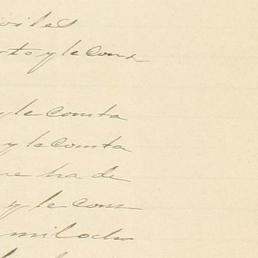 viles
rto y le cons
y le consta
y le consta
ue ha de
y le cons
mil ocho